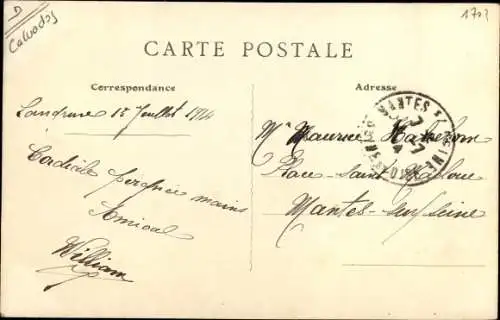 D
Calvados
1703
CARTE POSTALE
Correspondance
Adresse
15 Juillet 1914
Cordiale poignée mains
Amical
William
Mr Maurice
Place-Saint-Maclou
Mantes-sur-Seine
MANTES S SEINE